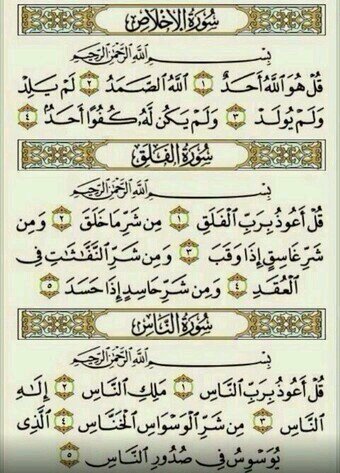 سُورَةُ الإِخْلَاصِ
بِسْمِ اللَّهِ الرَّحْمَٰنِ الرَّحِيمِ
قُلْ هُوَ اللَّهُ أَحَدٌ ١ اللَّهُ الصَّمَدُ ٢ لَمْ يَلِدْ
وَلَمْ يُولَدْ ٣ وَلَمْ يَكُن لَّهُ كُفُوًا أَحَدٌ ٤
سُورَةُ الفَلَقِ
بِسْمِ اللَّهِ الرَّحْمَٰنِ الرَّحِيمِ
قُلْ أَعُوذُ بِرَبِّ الْفَلَقِ ١ مِن شَرِّ مَا خَلَقَ ٢ وَمِن
شَرِّ غَاسِقٍ إِذَا وَقَبَ ٣ وَمِن شَرِّ النَّفَّاثَاتِ فِي
الْعُقَدِ ٤ وَمِن شَرِّ حَاسِدٍ إِذَا حَسَدَ ٥
سُورَةُ النَّاسِ
بِسْمِ اللَّهِ الرَّحْمَٰنِ الرَّحِيمِ
قُلْ أَعُوذُ بِرَبِّ النَّاسِ ١ مَلِكِ النَّاسِ ٢ إِلَٰهِ
النَّاسِ ٣ مِن شَرِّ الْوَسْوَاسِ الْخَنَّاسِ ٤ الَّذِي
يُوَسْوِسُ فِي صُدُورِ النَّاسِ ٥